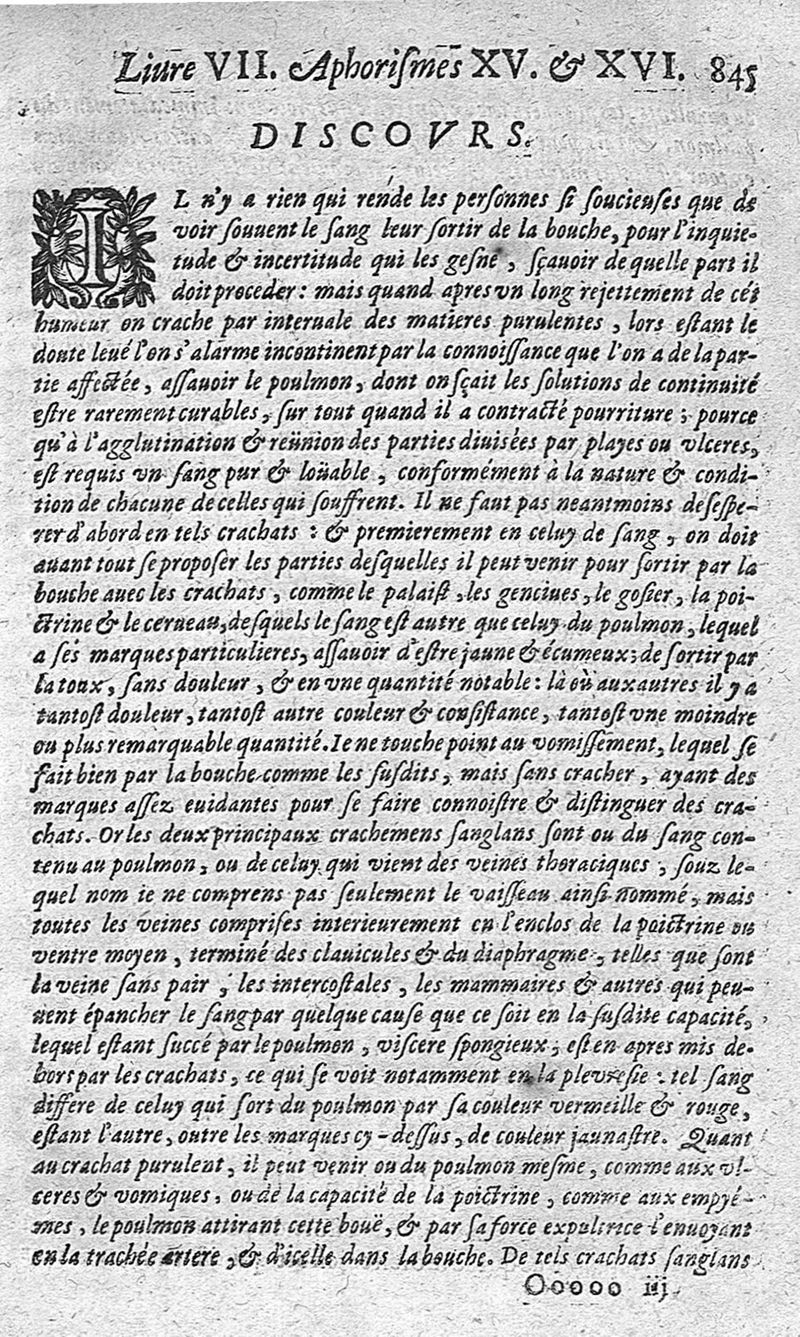 Liure VII. Aphoriſmes XV. & XVI. 845
DISCOVRS.
IL n'y a rien qui rende les perſonnes ſi ſoucieuſes que de
voir ſouuent le ſang leur ſortir de la bouche, pour l'inquie-
tude & incertitude qui les geſne, ſçauoir de quelle part il
doit proceder : mais quand apres vn long rejettement de cét
humeur on crache par interuale des matieres purulentes, lors eſtant le
doute leué l'on s'alarme incontinent par la connoiſſance que l'on a de la par-
tie affectée, aſſauoir le poulmon, dont on ſçait les ſolutions de continuité
eſtre rarement curables, ſur tout quand il a contracté pourriture ; pource
qu'à l'agglutination & reünion des parties diuiſées par playes ou vlceres,
eſt requis vn ſang pur & loüable, conformément à la nature & condi-
tion de chacune de celles qui ſouffrent. Il ne faut pas neantmoins deſeſpe-
rer d'abord en tels crachats : & premierement en celuy de ſang, on doit
auant tout ſe propoſer les parties deſquelles il peut venir pour ſortir par la
bouche auec les crachats, comme le palaiſt, les genciues, le goſier, la poi-
ctrine & le cerueau, deſquels le ſang eſt autre que celuy du poulmon, lequel
a ſes marques particulieres, aſſauoir d'eſtre jaune & écumeux; de ſortir par
la toux, ſans douleur, & en vne quantité notable : là où aux autres il y a
tantoſt douleur, tantoſt autre couleur & conſiſtance, tantoſt vne moindre
ou plus remarquable quantité. Ie ne touche point au vomiſſement, lequel ſe
fait bien par la bouche comme les ſuſdits, mais ſans cracher, ayant des
marques aſſez euidantes pour ſe faire connoiſtre & diſtinguer des cra-
chats. Or les deux principaux crachemens ſanglans ſont ou du ſang con-
tenu au poulmon, ou de celuy qui vient des veines thoraciques, ſouz le-
quel nom ie ne comprens pas ſeulement le vaiſſeau ainſi nommé, mais
toutes les veines compriſes interieurement en l'enclos de la poictrine ou
ventre moyen, terminé des clauicules & du diaphragme, telles que ſont
la veine ſans pair, les intercoſtales, les mammaires & autres qui peu-
uent épancher le ſang par quelque cauſe que ce ſoit en la ſuſdite capacité,
lequel eſtant ſuccé par le poulmon, viſcere ſpongieux, eſt en apres mis de-
hors par les crachats, ce qui ſe voit notamment en la pleureſie : tel ſang
differe de celuy qui ſort du poulmon par ſa couleur vermeille & rouge,
eſtant l'autre, outre les marques cy-deſſus, de couleur jaunaſtre. Quant
au crachat purulent, il peut venir ou du poulmon meſme, comme aux vl-
ceres & vomiques, ou de la capacité de la poictrine, comme aux empyé-
mes, le poulmon attirant cette bouë, & par ſa force expultrice l'enuoyant
en la trachée artere, & d'icelle dans la bouche. De tels crachats ſanglans
Ooooo iij